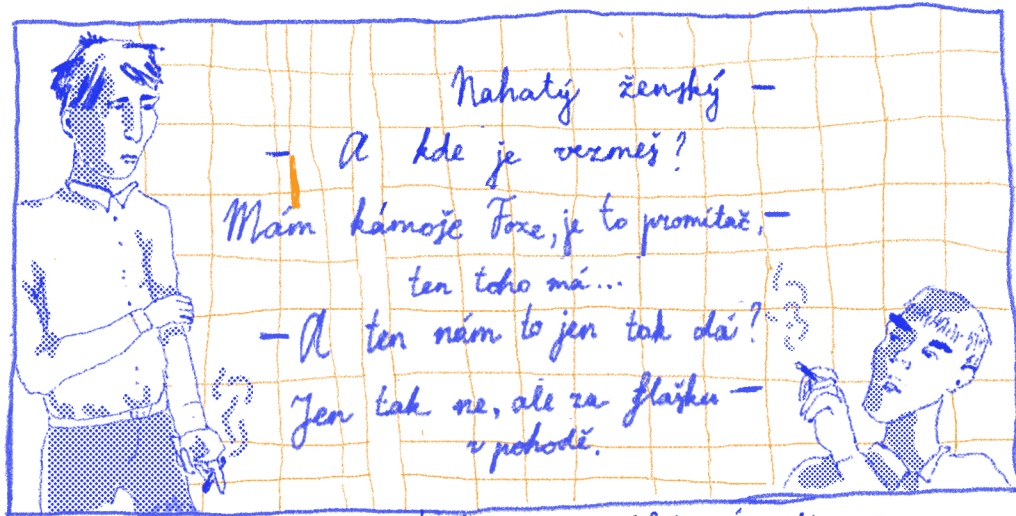 Nahatý ženský –
– A kde je vezmeš?
Mám kámoše Foxe, je to promítač, –
ten toho má...
– A ten nám to jen tak dá?
Jen tak ne, ale za flašku –
v pohodě.